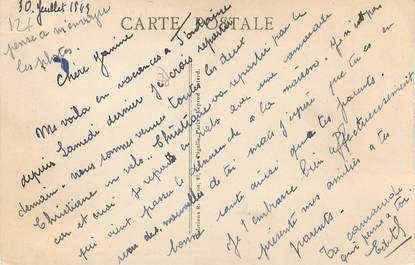 30. Juillet 1943
12f
CARTE POSTALE
pense a m'envoyer
les photos.
Chère Janine
Me voila en vacances à
depuis Samedi dernier je crois repartir
demain. nous sommes venues toutes les deux
Christiane en velo.. Christiane va repartir par le
car et moi je repartirai à velo avec une camarade
qui vient passer le dimanche a la maison. Je n'ai pas
reçu des nouvelles de toi mais j'espère que tu es en
bonne santé ainsi que tes parents.
Je t'embrasse bien affectueusement
présente mes amitiés à tes
parents.
Ta camarade
qui pense à toi
Edith